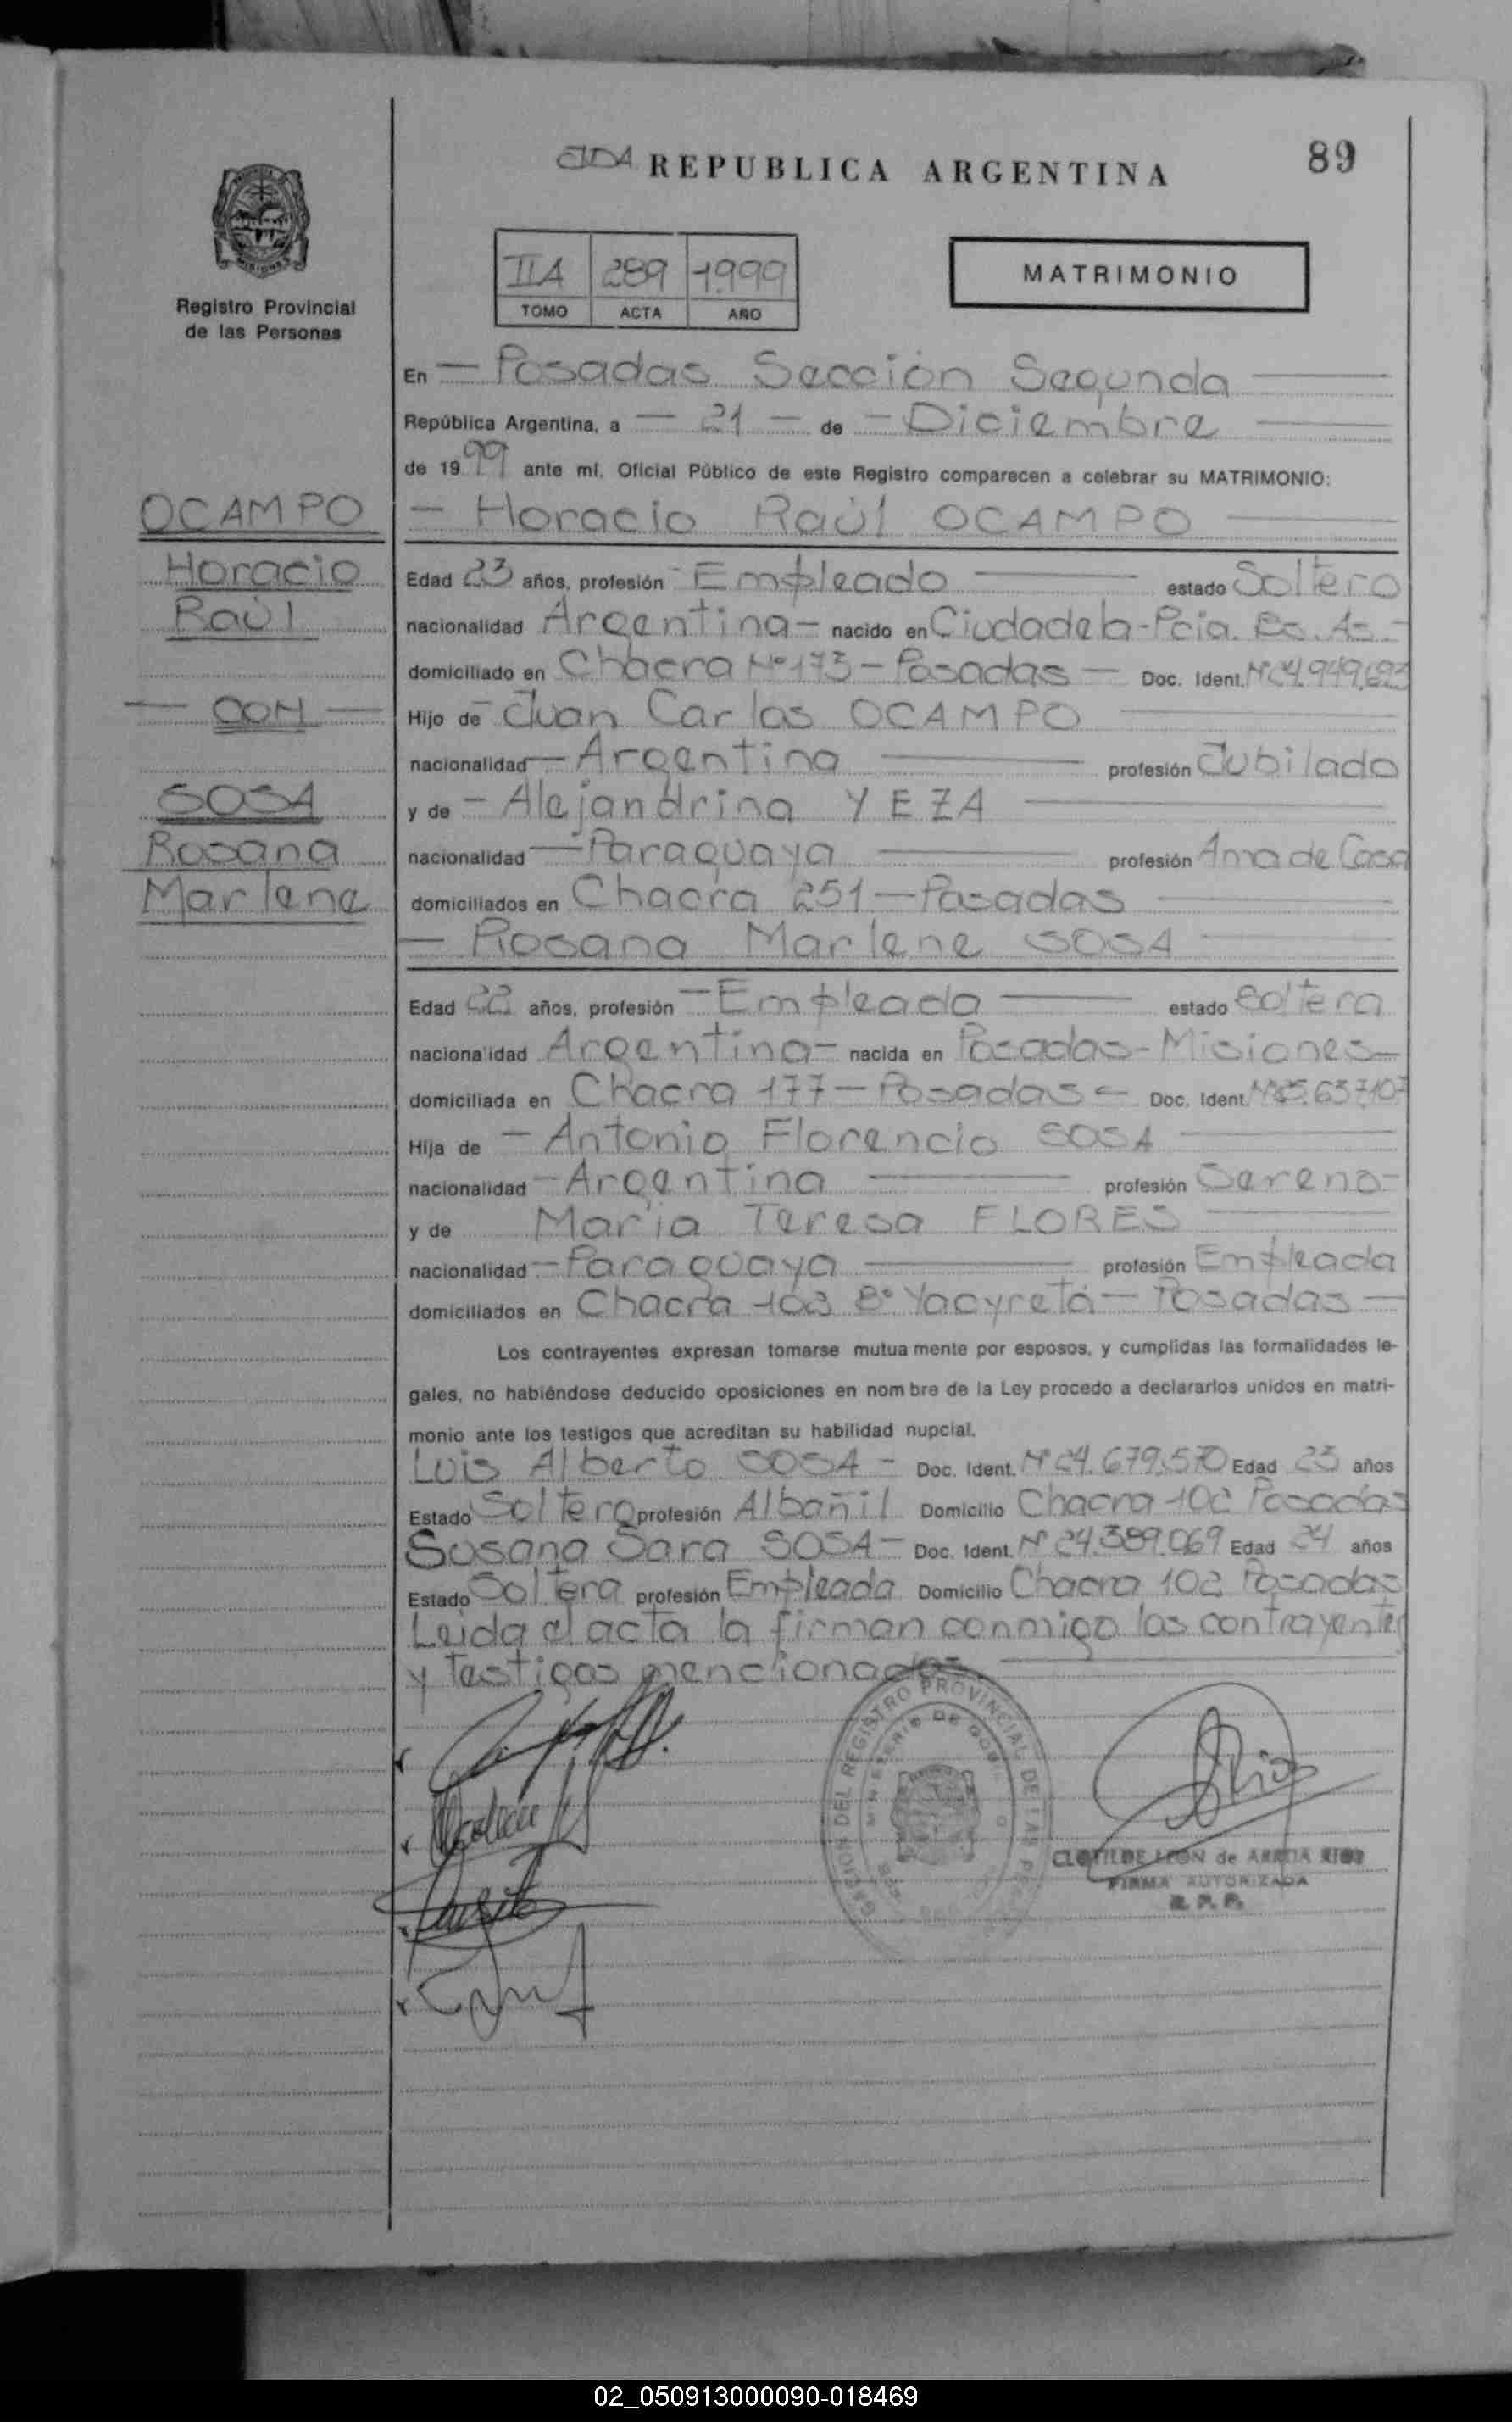 89
REPUBLICA ARGENTINA
MISIONES
Registro Provincial
de las Personas
IIA 289 1999
TOMO ACTA AÑO
MATRIMONIO
En — Posadas Sección Segunda
República Argentina, a — 21 — de — Diciembre
de 1999 ante mí, Oficial Público de este Registro comparecen a celebrar su MATRIMONIO:
OCAMPO
Horacio
Raúl
— CON —
SOSA
Rosana
Marlene
— Horacio Raúl OCAMPO
Edad 23 años, profesión - Empleado — estado Soltero
nacionalidad Argentina - nacido en Ciudadela - Pcia. Bs. As. -
domiciliado en Chacra Nº 173 - Posadas — Doc. Ident. Nº 24.949.693
Hijo de - Juan Carlos OCAMPO
nacionalidad — Argentina — profesión Jubilado
y de - Alejandrina YEZA
nacionalidad — Paraguaya — profesión Ama de Casa
domiciliados en Chacra 251 — Posadas
— Rosana Marlene SOSA
Edad 22 años, profesión - Empleada — estado Soltera
nacionalidad Argentina - nacida en Posadas - Misiones -
domiciliada en Chacra 177 - Posadas - Doc. Ident. Nº 25.637.107
Hija de - Antonio Florencio SOSA
nacionalidad - Argentina — profesión Sereno -
y de María Teresa FLORES
nacionalidad - Paraguaya — profesión Empleada
domiciliados en Chacra 103 Bº Yacyretá - Posadas —
Los contrayentes expresan tomarse mutua mente por esposos, y cumplidas las formalidades le-
gales, no habiéndose deducido oposiciones en nom bre de la Ley procedo a declararlos unidos en matri-
monio ante los testigos que acreditan su habilidad nupcial.
Luis Alberto SOSA - Doc. Ident. Nº 24.679.570 Edad 23 años
Estado Soltero profesión Albañil Domicilio Chacra 102 Posadas
Susana Sara SOSA - Doc. Ident. Nº 24.389.069 Edad 24 años
Estado Soltera profesión Empleada Domicilio Chacra 102 Posadas
Leida el acta la firman conmigo los contrayentes
y testigos mencionados
DEL REGISTRO PROVINCIAL DE LAS
CLOTILDE LEON de ARRUA RIOS
FIRMA AUTORIZADA
R. P. P.
02_050913000090-018469